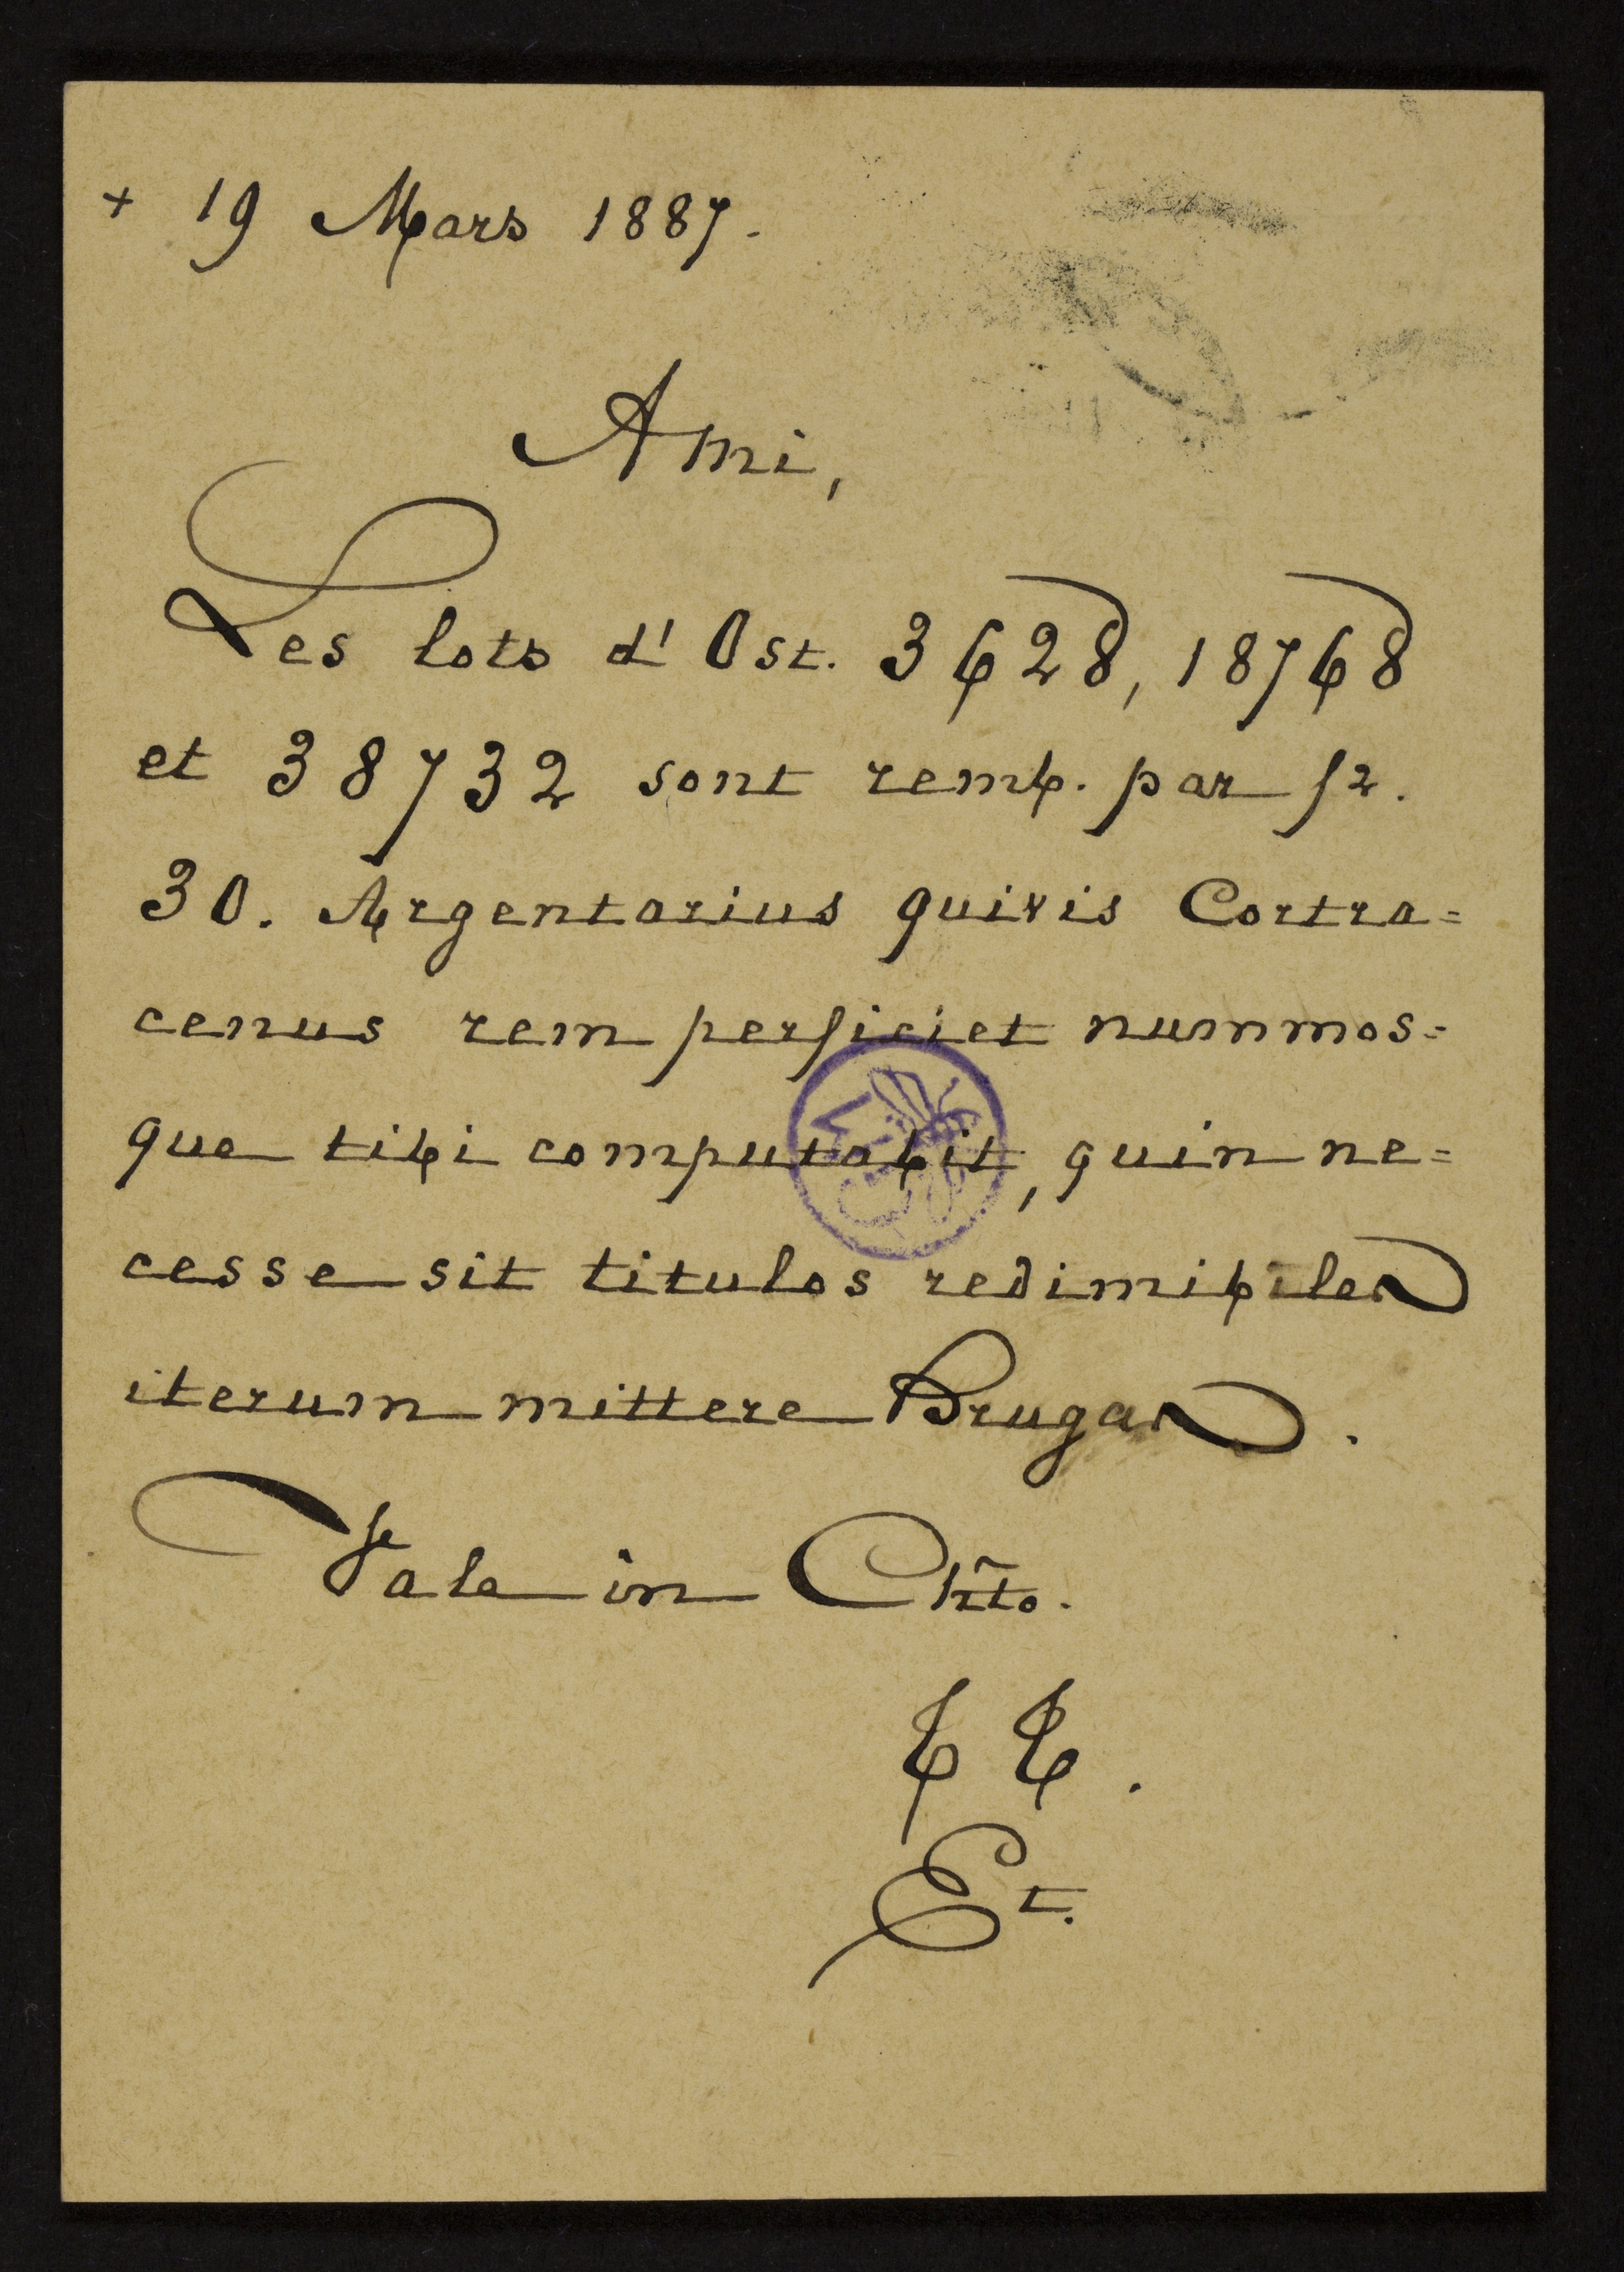 + 19 Mars 1887.
Ami,
Les lots d'Ost. 3628, 18768
et 38732 sont remb. par fr.
30. Argentarius quivis Cortra=
cenus rem perficiet nummos=
que tibi computabit, quin ne=
cesse sit titulos redimibiles
iterum mittere Brugas.
Vale in Chr̃to.
Et.